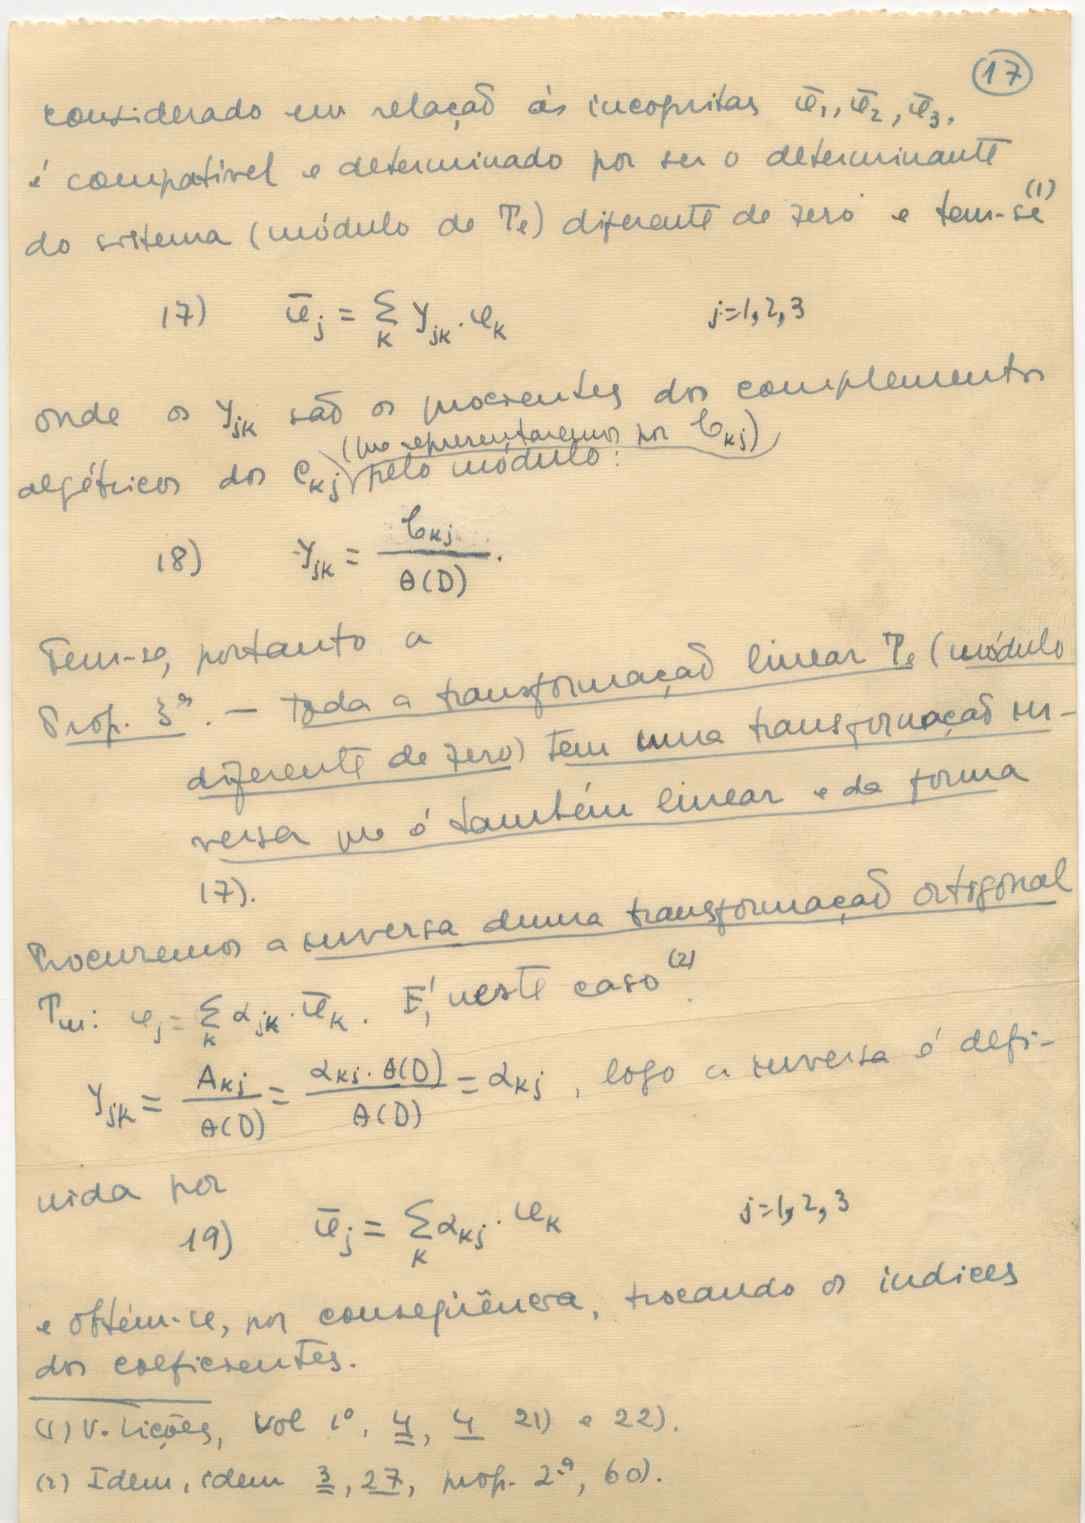 17
considerado em relação às incógnitas ū₁, ū₂, ū₃,
é compatível e determinado por ser o determinante
do sistema (módulo de Tₑ) diferente de zero e tem-se⁽¹⁾
17) ūⱼ = Σₖ γⱼₖ · uₖ j=1,2,3
onde os γⱼₖ são os quocientes dos complementos
(que representaremos por 𝒞ₖⱼ)
algébricos dos cₖⱼ pelo módulo:
18) γⱼₖ = 𝒞ₖⱼ / θ(D).
Tem-se, portanto a
Prop. 3ª. — Toda a transformação linear Tₑ (módulo
diferente de zero) tem uma transformação in-
versa que é também linear e da forma
17).
Procuremos a inversa duma transformação ortogonal
Tₘ: uⱼ = Σₖ αⱼₖ · ūₖ. É, neste caso⁽²⁾
γⱼₖ = Aₖⱼ / θ(D) = αₖⱼ · θ(D) / θ(D) = αₖⱼ, logo a inversa é defi-
nida por
19) ūⱼ = Σₖ αₖⱼ · uₖ j=1,2,3
e obtém-se, por conseqüência, trocando os indices
dos coeficientes.
(1) V. Lições, vol 1º, 4, 4 21) e 22).
(2) Idem, idem 3, 27, prop. 2ª, 60).